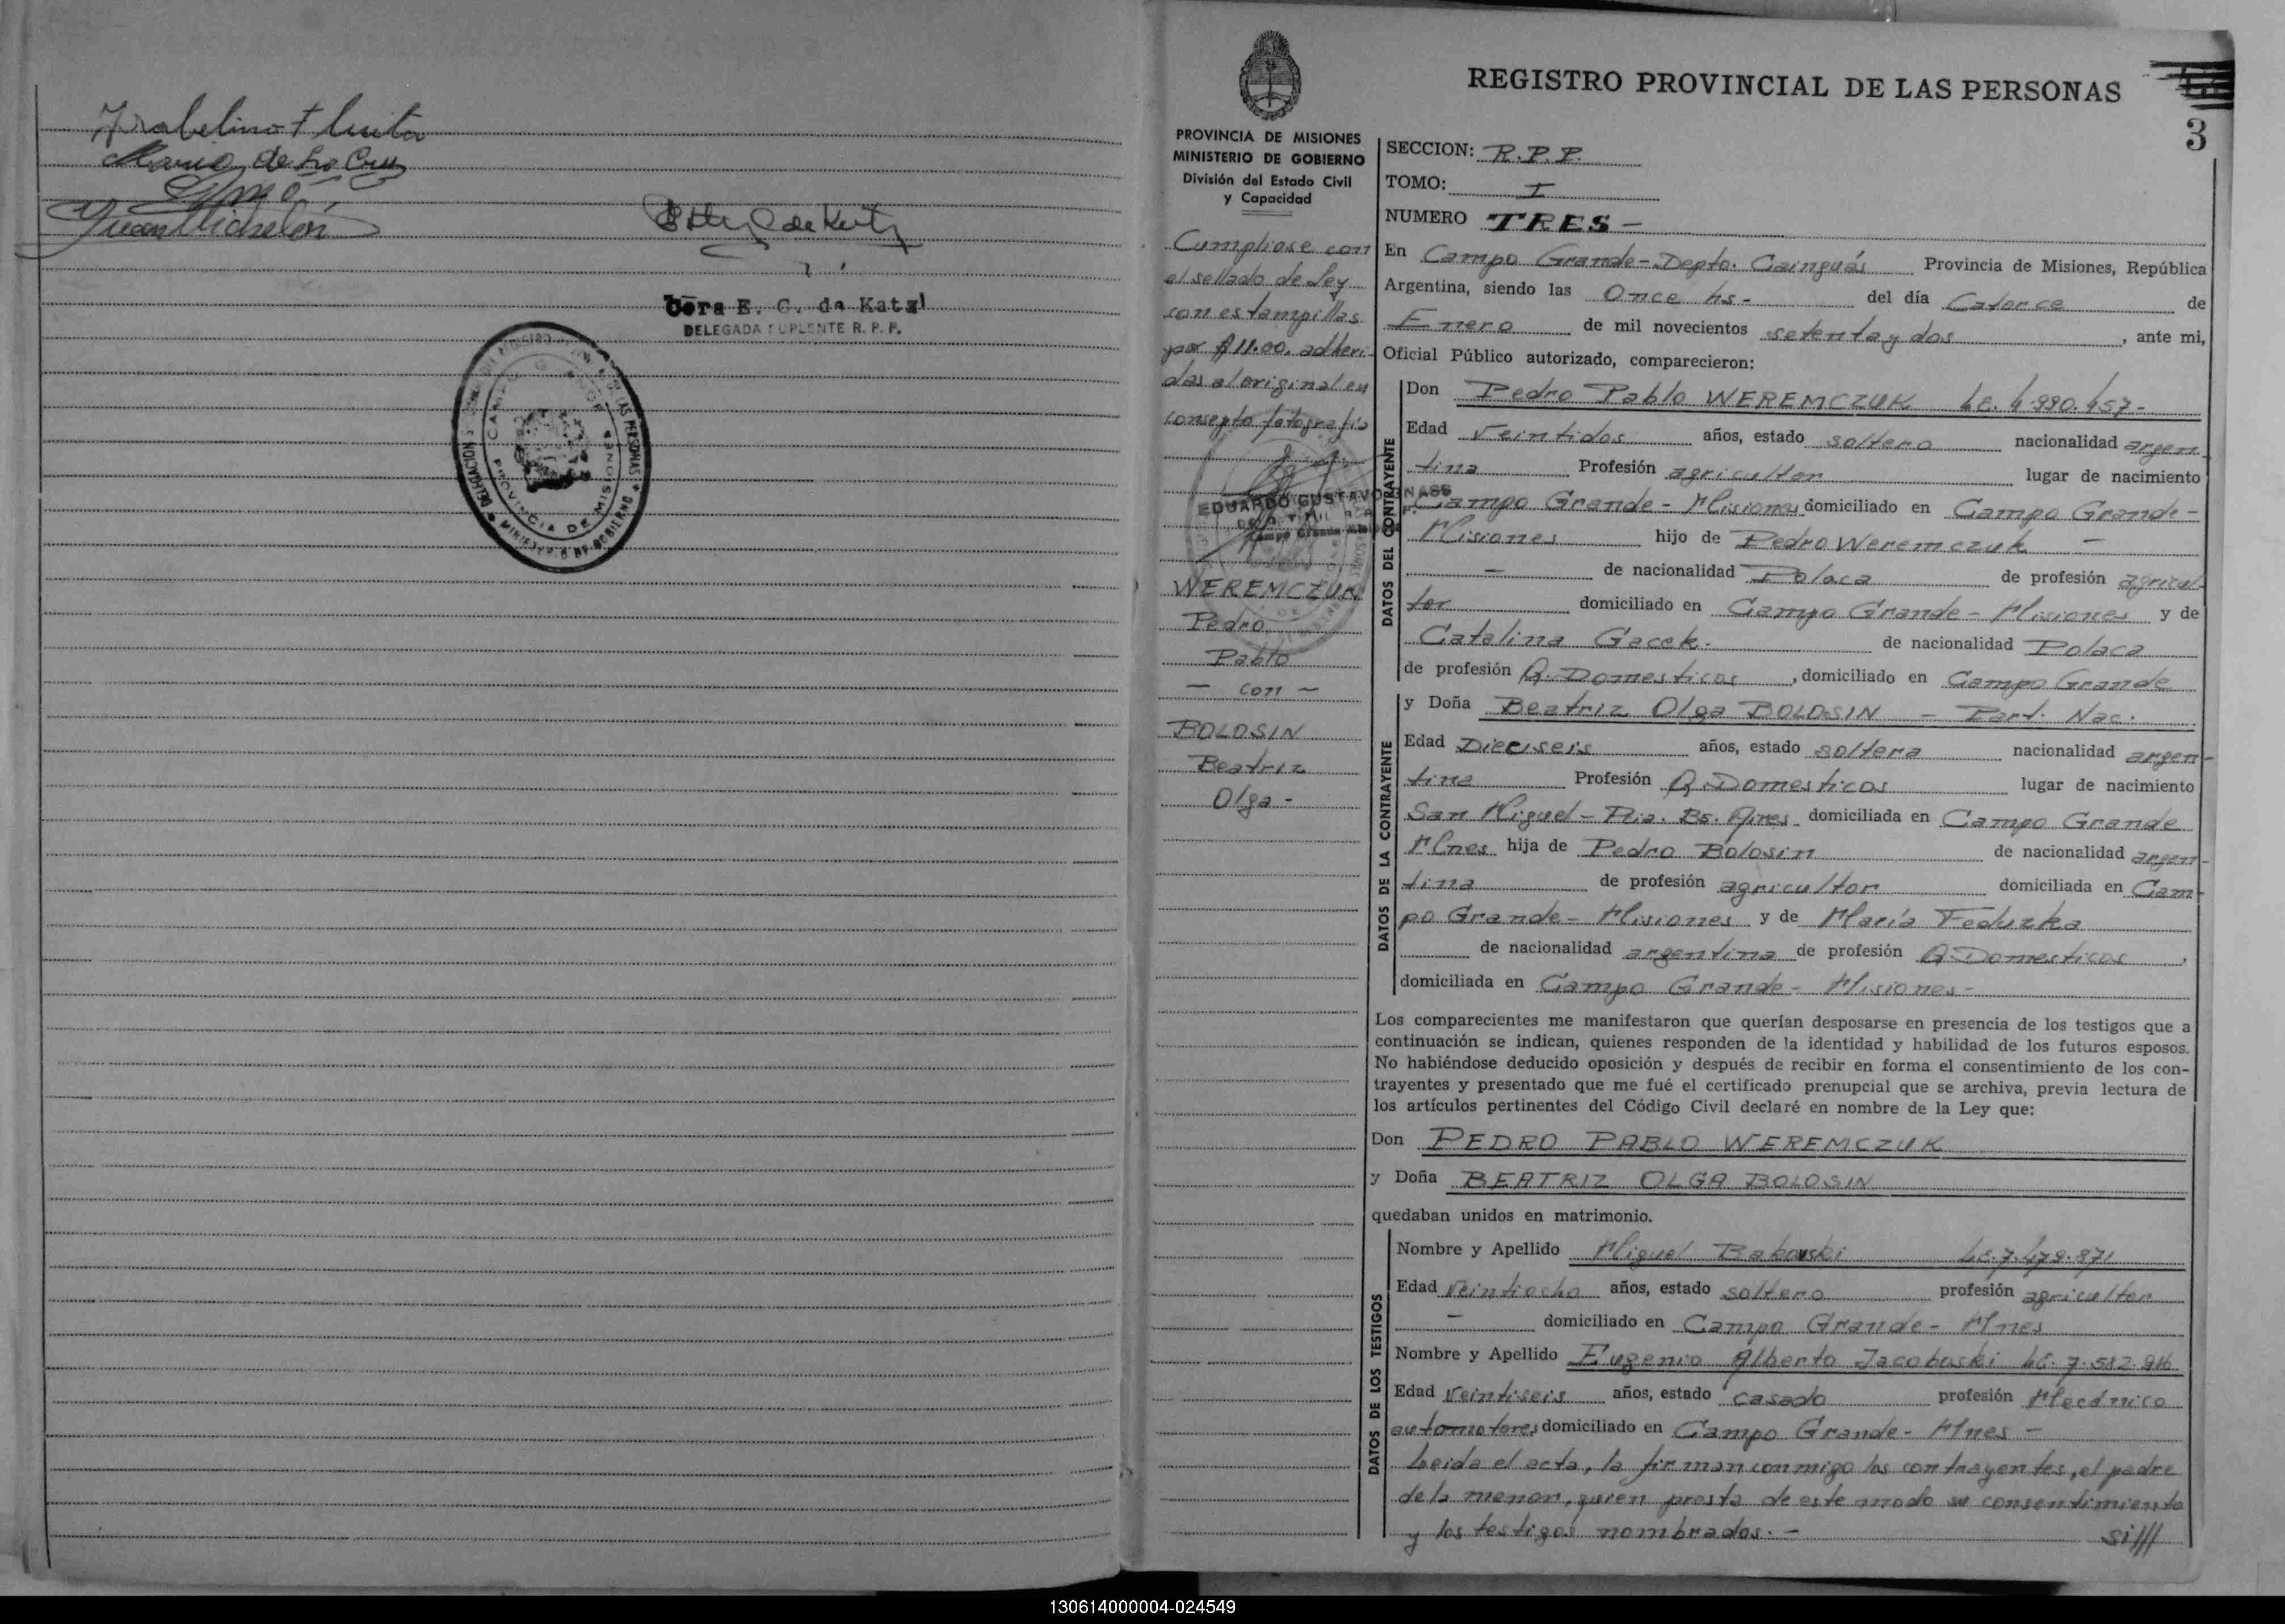 Maria de La Cruz
Juan Michelón
Dora E. C. de Katz
DELEGADA SUPLENTE R. P. P.
DELEGACION
DE LAS PERSONAS
MINISTERIO DE GOBIERNO
CAMPO GRANDE
PROVINCIA DE MISIONES
PROVINCIA DE MISIONES
MINISTERIO DE GOBIERNO
División del Estado Civil
y Capacidad
Cumpliose con
el sellado de ley
con estampillas
por $ 11.00. adheri-
das al original en
consepto fotografia
EDUARDO GUSTAVO GNASS
Campo Grande
WEREMCZUK
Pedro
Pablo
- con -
BOLOSIN
Beatriz
Olga -
REGISTRO PROVINCIAL DE LAS PERSONAS
3
SECCION: R.P.P.
TOMO: I
NUMERO TRES -
En Campo Grande - Depto. Cainguás Provincia de Misiones, República
Argentina, siendo las Once hs - del día Catorce de
Enero de mil novecientos setenta y dos, ante mi,
Oficial Público autorizado, comparecieron:
DATOS DEL CONTRAYENTE
Don Pedro Pablo WEREMCZUK L.E. 4.990.457 -
Edad Veintidos años, estado soltero nacionalidad argen
tina Profesión agricultor lugar de nacimiento
Campo Grande - Misiones domiciliado en Campo Grande -
Misiones hijo de Pedro Weremczuk -
- de nacionalidad Polaca de profesión agricul-
tor domiciliado en Campo Grande - Misiones y de
Catalina Gacek. de nacionalidad Polaca
de profesión Q. Domesticos, domiciliado en Campo Grande
DATOS DE LA CONTRAYENTE
y Doña Beatriz Olga BOLOSIN - Part. Nac.
Edad Dieciseis años, estado soltera nacionalidad argen-
tina Profesión Q. Domesticos lugar de nacimiento
San Miguel - Pia. Bs. Aires domiciliada en Campo Grande
Mnes hija de Pedro Bolosin de nacionalidad argen-
tina de profesión agricultor domiciliada en Cam-
po Grande - Misiones y de María Feduzka
de nacionalidad argentina de profesión Q. Domesticos,
domiciliada en Campo Grande - Misiones -
Los comparecientes me manifestaron que querían desposarse en presencia de los testigos que a
continuación se indican, quienes responden de la identidad y habilidad de los futuros esposos.
No habiéndose deducido oposición y después de recibir en forma el consentimiento de los con-
trayentes y presentado que me fué el certificado prenupcial que se archiva, previa lectura de
los artículos pertinentes del Código Civil declaré en nombre de la Ley que:
Don PEDRO PABLO WEREMCZUK
y Doña BEATRIZ OLGA BOLOSIN
quedaban unidos en matrimonio.
DATOS DE LOS TESTIGOS
Nombre y Apellido Miguel Bakowski L.E. 7.479.871
Edad Veintiocho años, estado soltero profesión agricultor
- domiciliado en Campo Grande - Mnes
Nombre y Apellido Eugenio Alberto Jacoboski L.E. 7.582.916
Edad Veintiseis años, estado casado profesión Mecánico
automotores domiciliado en Campo Grande - Mnes -
Leida el acta, la firman conmigo los contrayentes, el padre
de la menor, quien presta de este modo su consentimiento
y los testigos nombrados. - si///
130614000004-024549